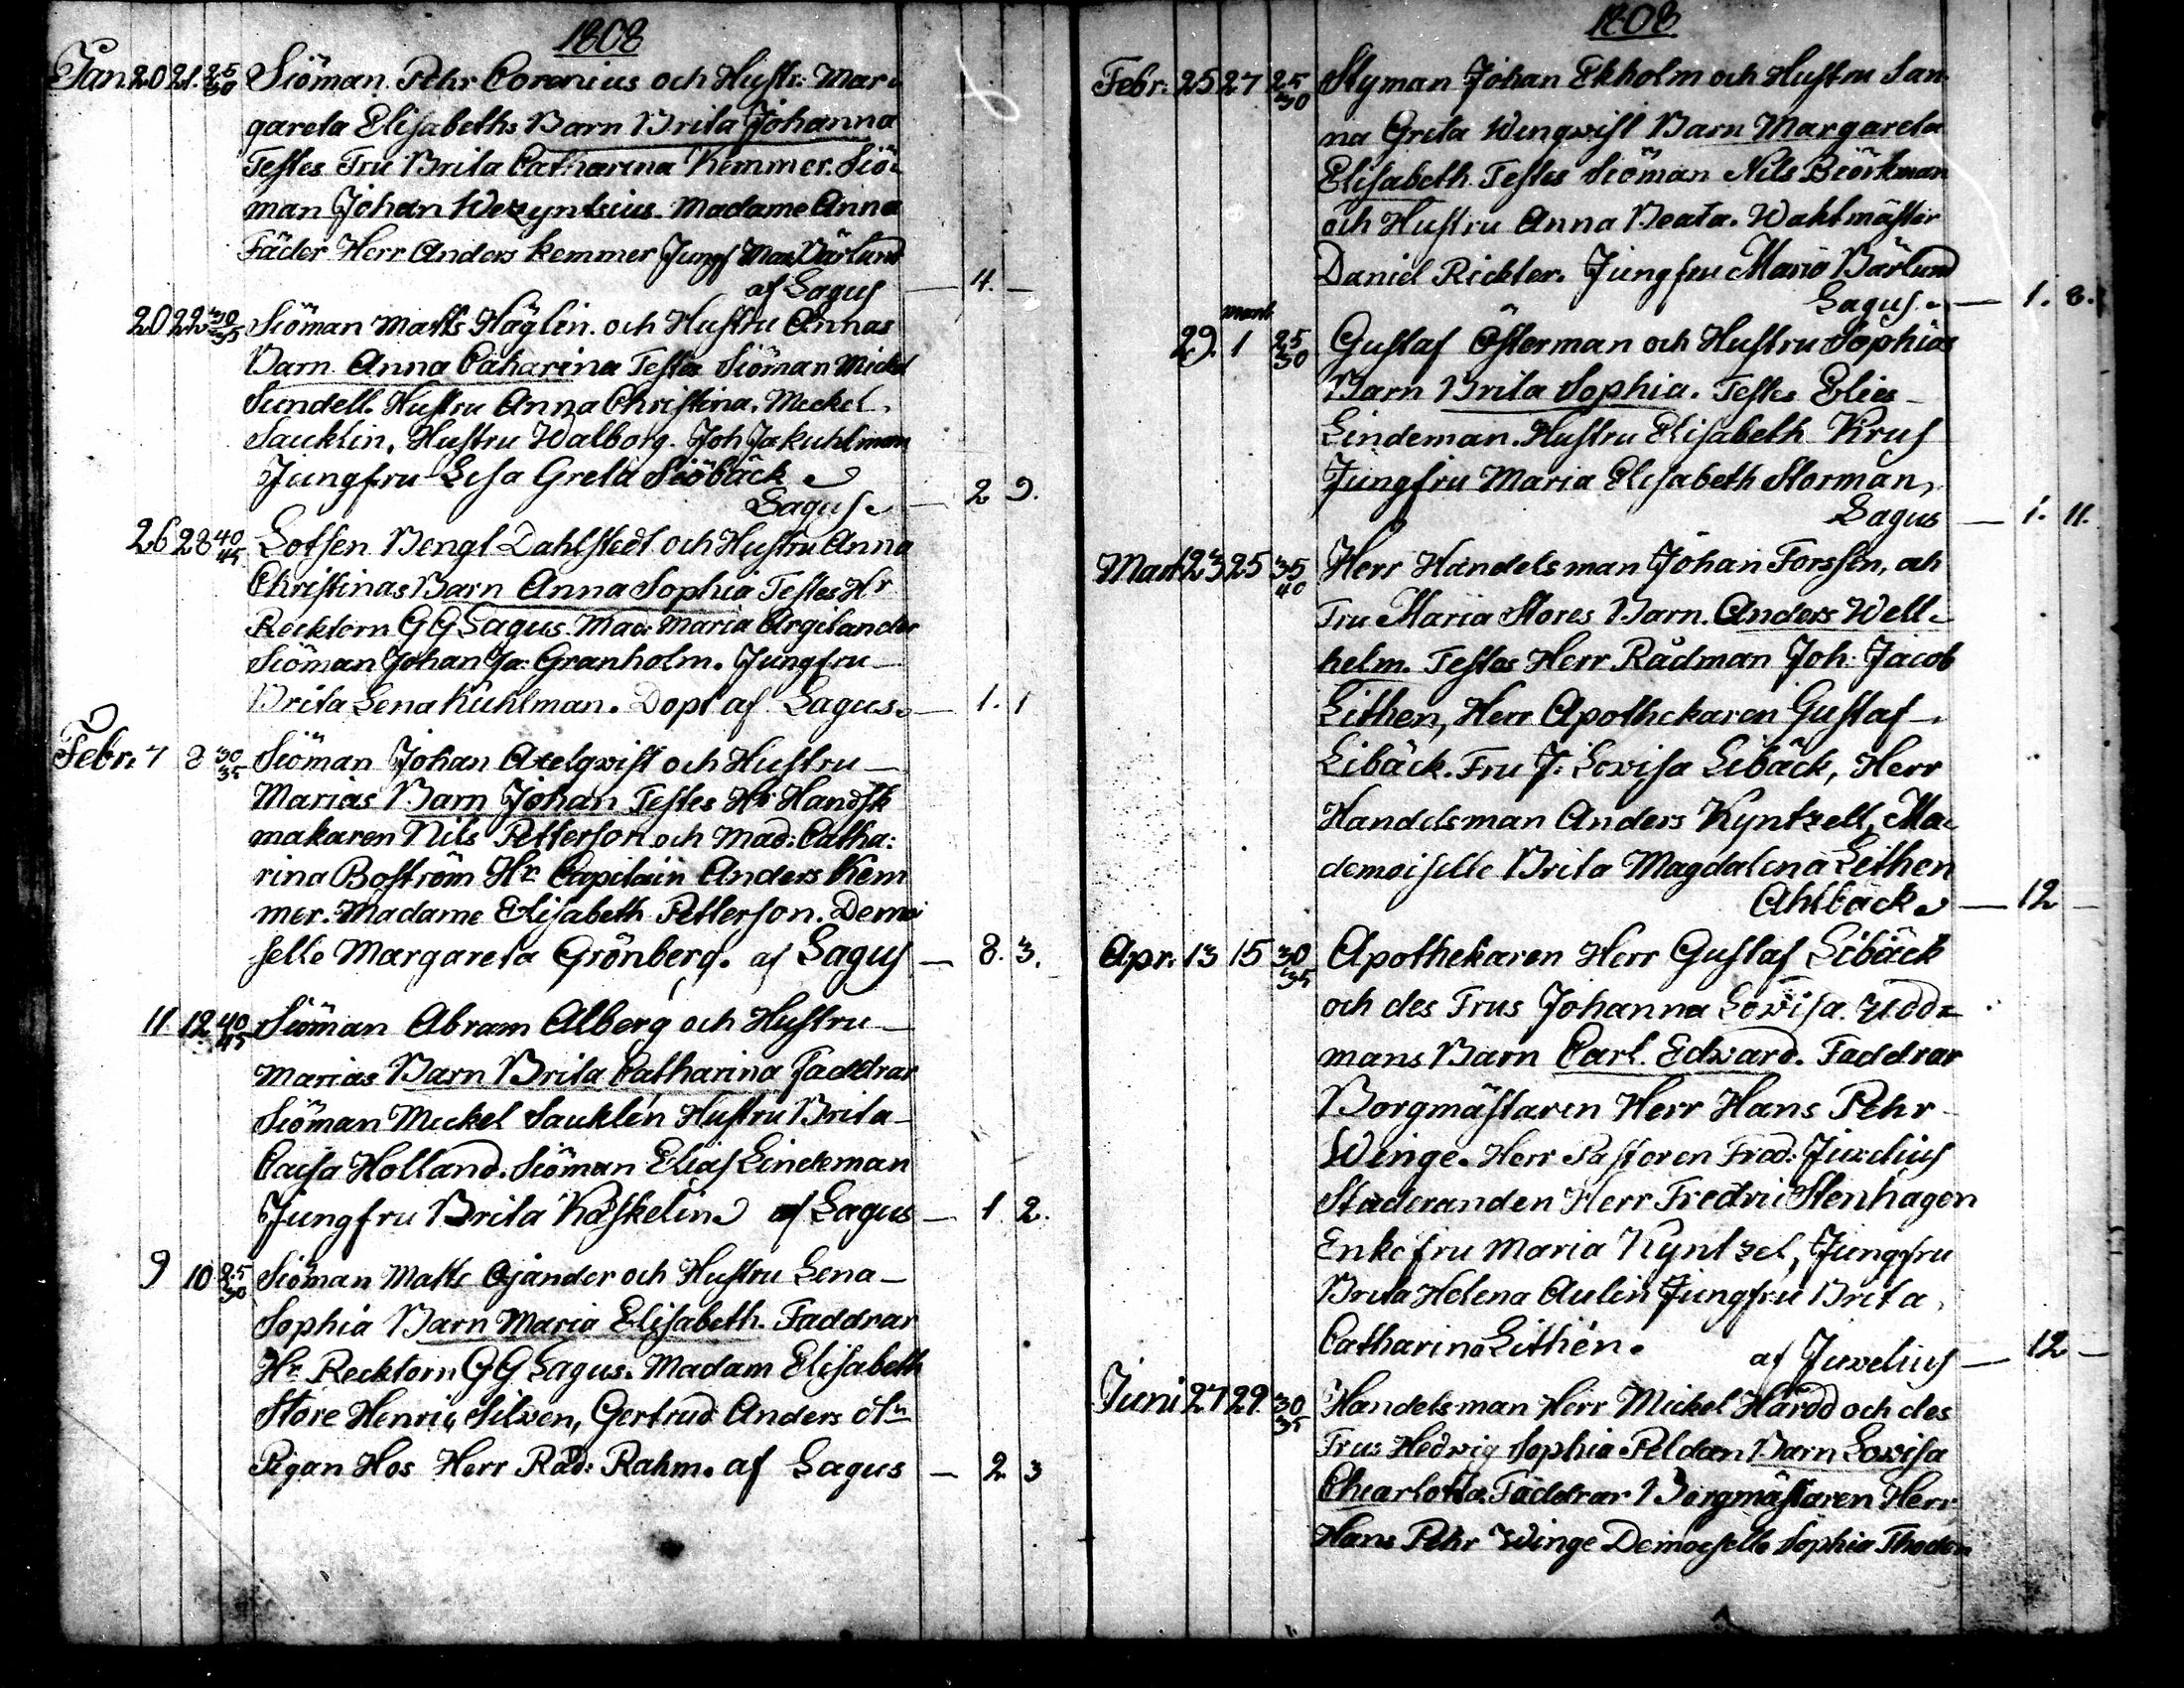 1808
Jan. 20 21. 25/30 Siöman Pehr Corenius och Hustr: Mar-
gareta Elisabeths Barn Brita Johanna
Testes Fru Brita Catharina Kemmer. Siö-
man Johan Wezyntsius. Madame Anna
Fäder Herr Anders Kemmer Jungf Mar Bärlund
af Lagus — 4. —
20 22 30/35 Siöman Matts Häglin. och Hustru Annas
Barn Anna Catharina Testes Siöman Mickel
Sundell. Hustru Anna Christina. Meckel
Sauklin, Hustru Walborg. Joh Ja Kuhlman
Jungfru Lisa Greta Siöbäck
Lagus — 2 9.
26 28 40/45 Lotsen Bengt Dahlstedt och Hustru Anna
Christinas Barn Anna Sophia Testes Hr
Recktorn GG Lagus. Mad: Maria Argilander
Siöman Johan Ja: Granholm. Jungfru
Brita Lena Kuhlman. Dopt af Lagus. — 1. 1
Febr. 7 8 30/35 Siöman Johan Axelqwist och Hustru
Marias Barn Johan Testes Hr Handsk
makaren Nils Petterson och Mad: Catha:
rina Boström Hr Capitain Anders Kem
mer. Madame Elisabeth Petterson. Demoi
selle Margareta Grönberg. af Lagus — 8. 3.
11 12 40/45 Siöman Abram Alberg och Hustru
Marias Barn Brita Catharina Faddrar
Siöman Mickel Sauklin Hustru Brita
Caisa Holland. Siöman Elias Lindeman
Jungfru Brita Käskelin af Lagus — 1. 2.
9 10 25/30 Siöman Matts Ojander och Hustru Lena
Sophia Barn Maria Elisabeth. Faddrar
Hr Recktorn GG Lagus. Madam Elisabeth
Store Henric Silven, Gertrud Anders
Pigan Hos Herr Råd: Rahm. af Lagus — 2 3
1808
Febr. 25 27 25/30 Styman Johan Ekholm och Hustru San
na Greta Wengqwist Barn Margareta
Elisabeth. Testes Siöman Nils Biörkman
och Hustru Anna Beata. Waktmäster
Daniel Rickter. Jungfru Maria Bärlund
Lagus. — 1. 8.
mart
29. 1 25/30 Gustaf Österman och Hustru Sophias
Barn Brita Sophia. Testes Elies
Lindeman. Hustru Elisabeth Krus
Jungfru Maria Elisabeth Storman,
Lagus — 1. 11.
Mart 23 25 35/40 Herr Handelsman Johan Forssen, och
Fru Maria Stores Barn. Anders Well-
helm. Testes Herr Rådman Joh: Jacob
Lithen, Herr Apothekaren Gustaf
Libäck. Fru J: Lovisa Libäck, Herr
Handelsman Anders Kyntzell, Ma-
demoiselle Brita Magdalena Lithen
Ahlbäck — 12 —
Apr. 13 15 30/35 Apothekaren Herr Gustaf Libäck
och des Frus Johanna Lovisa Udd=
mans Barn Carl Edvard. Faddrar
Borgmästaren Herr Hans Pehr
Winge. Herr Pastoren Fred: Juvelius
Studeranden Herr Fredric Stenhagen
Enkefru Maria Kyntzel, Jungfru
Brita Helena Aulin Jungfru Brita
Catharina Lithén. af Juvelius — 12 —
Juni 27 29. 30/35 Handelsman Herr Mickel Hårdd och des
Frus Hedvig Sophia Peldan Barn Lovisa
Charlotta. Faddrar Borgmästaren Herr
Hans Pehr Winge Demoiselle Sophia Thoden